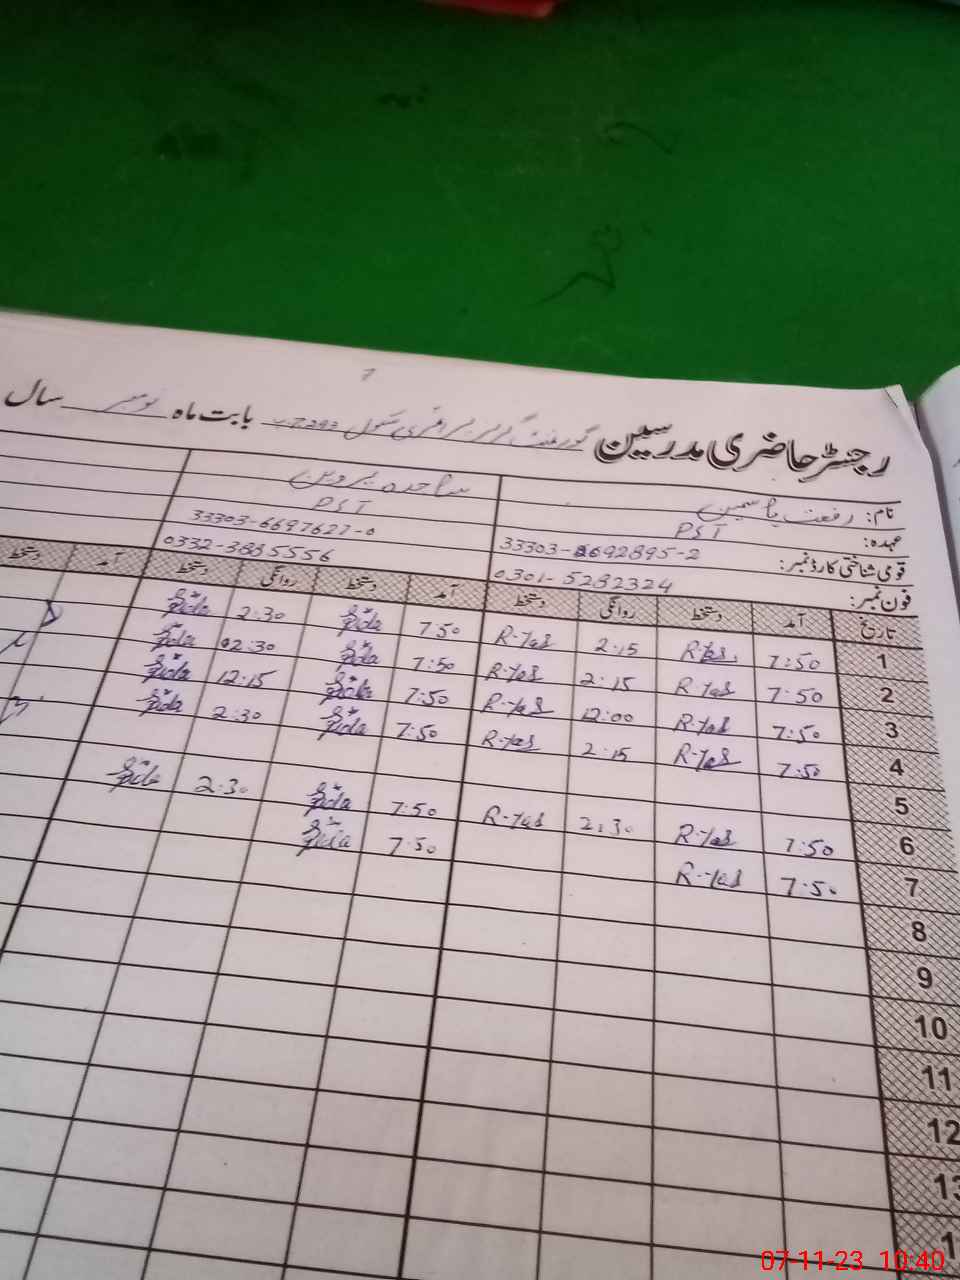 7
رجسٹر حاضری مدرسین گورنمنٹ گرلز پرائمری سکول 293 بابت ماہ نومبر سال
نام: رفعت یاسمین ساجدہ پروین
عہدہ: PST PST
قومی شناختی کارڈ نمبر: 33303-6692895-2 33303-6697627-0
فون نمبر: 0301-5282324 0332-3885556
تاریخ آمد دستخط روانگی دستخط آمد دستخط روانگی دستخط آمد دستخط
1 7:50 R-Yas 2:15 R-Yas 7:50 2:30
2 7:50 R-Yas 2:15 R-Yas 7:50 02:30
3 7:50 R-Yas 12:00 R-Yas 7:50 12:15
4 7:50 R-Yas 2:15 R-Yas 7:50 2:30
5
6 7:50 R-Yas 2:30 R-Yas 7:50 2:30
7 7:50 R-Yas 7:50
8
9
10
11
12
13
07-11-23 10:40